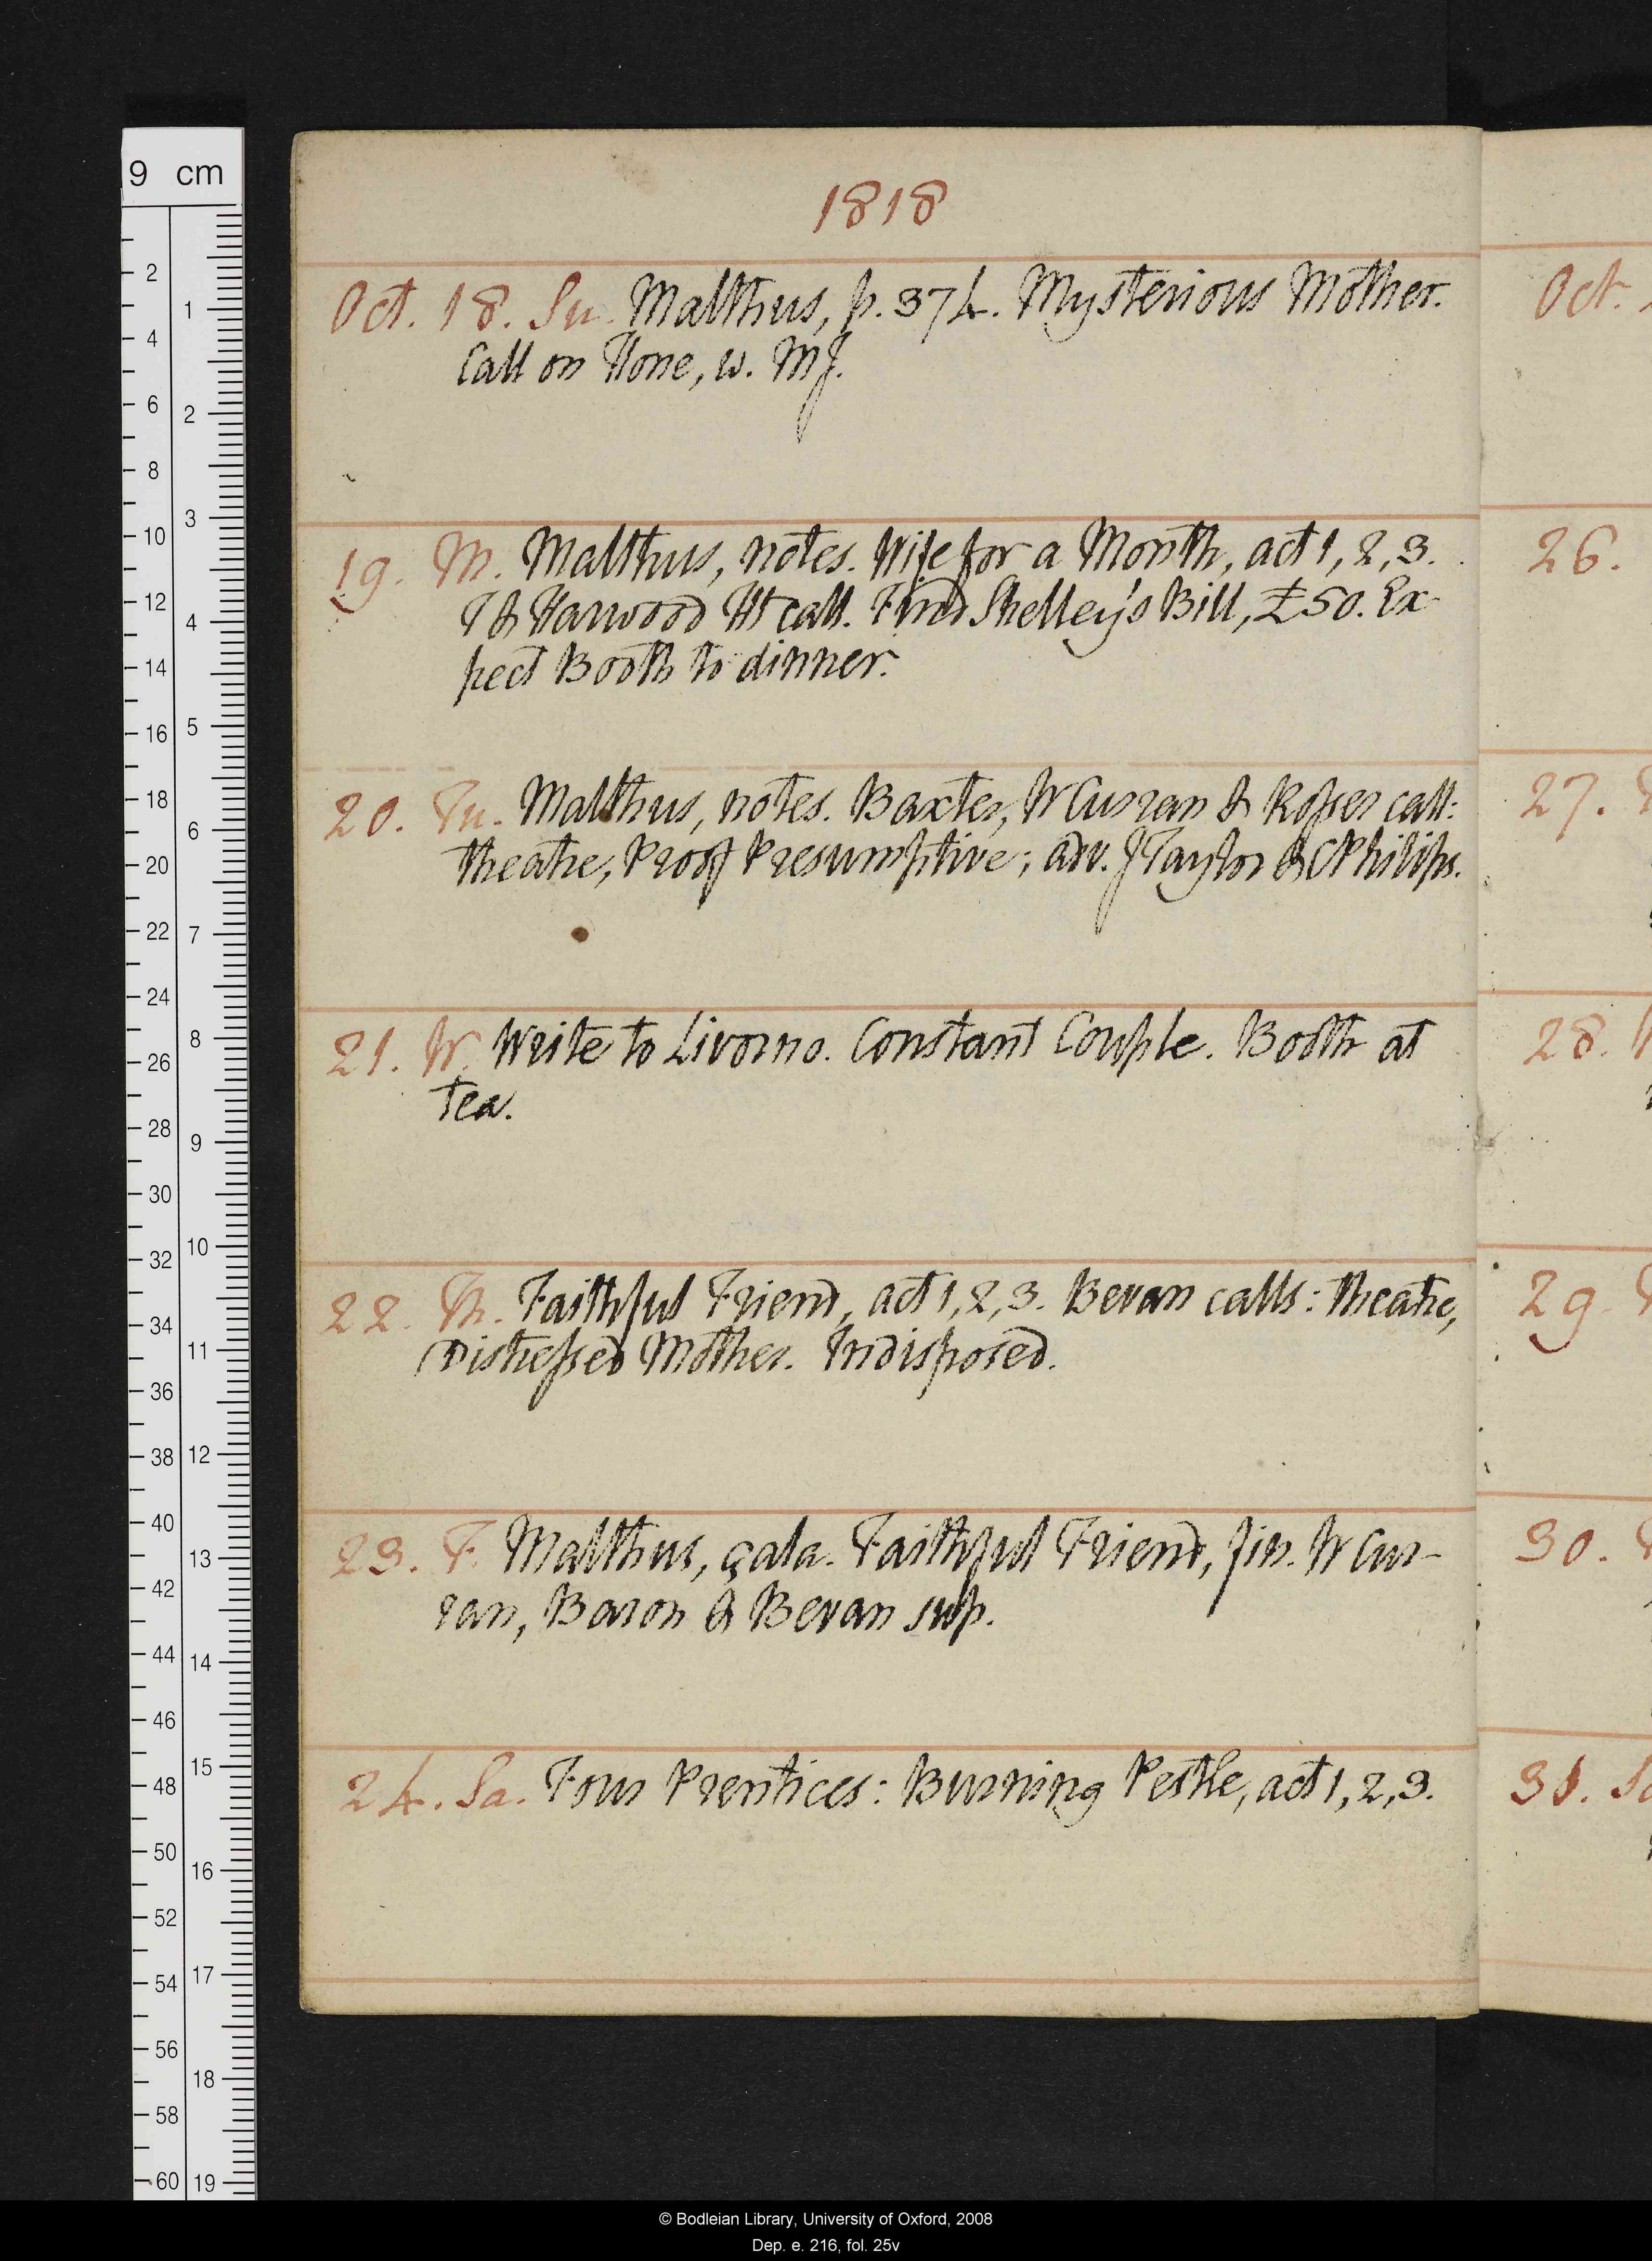 1818
Oct. 18. Su. Malthus, p. 374. Mysterious Mother.
Call on Hone, w. MJ.
19. M. Malthus, notes. Wife for a Month, act 1, 2, 3.
T & Harwood Ht call. Find Shelley's Bill, £50. Ex
pect Booth to dinner.
20. Tu. Malthus, notes. Baxter, W Curran & Rosser call:
theatre, Proof Presumptive; adv. J Taylor & C Philips.
21. W. Write to Livorno. Constant Couple. Booth at
tea.
22. Th. Faithful Friend, act 1, 2, 3. Bevan calls: theatre,
Distressed Mother. Indisposed.
23. F. Malthus, çala. Faithful Friend, fin. W Cur-
ran, Baron & Bevan sup.
24. Sa. Four Prentices: Burning Pestle, act 1, 2, 3.
Oct.
26.
27.
28.
29.
30.
31. Sa
9 cm
2
4
6
8
10
12
14
16
18
20
22
24
26
28
30
32
34
36
38
40
42
44
46
48
50
52
54
56
58
60
1
2
3
4
5
6
7
8
9
10
11
12
13
14
15
16
17
18
19
© Bodleian Library, University of Oxford, 2008
Dep. e. 216, fol. 25v